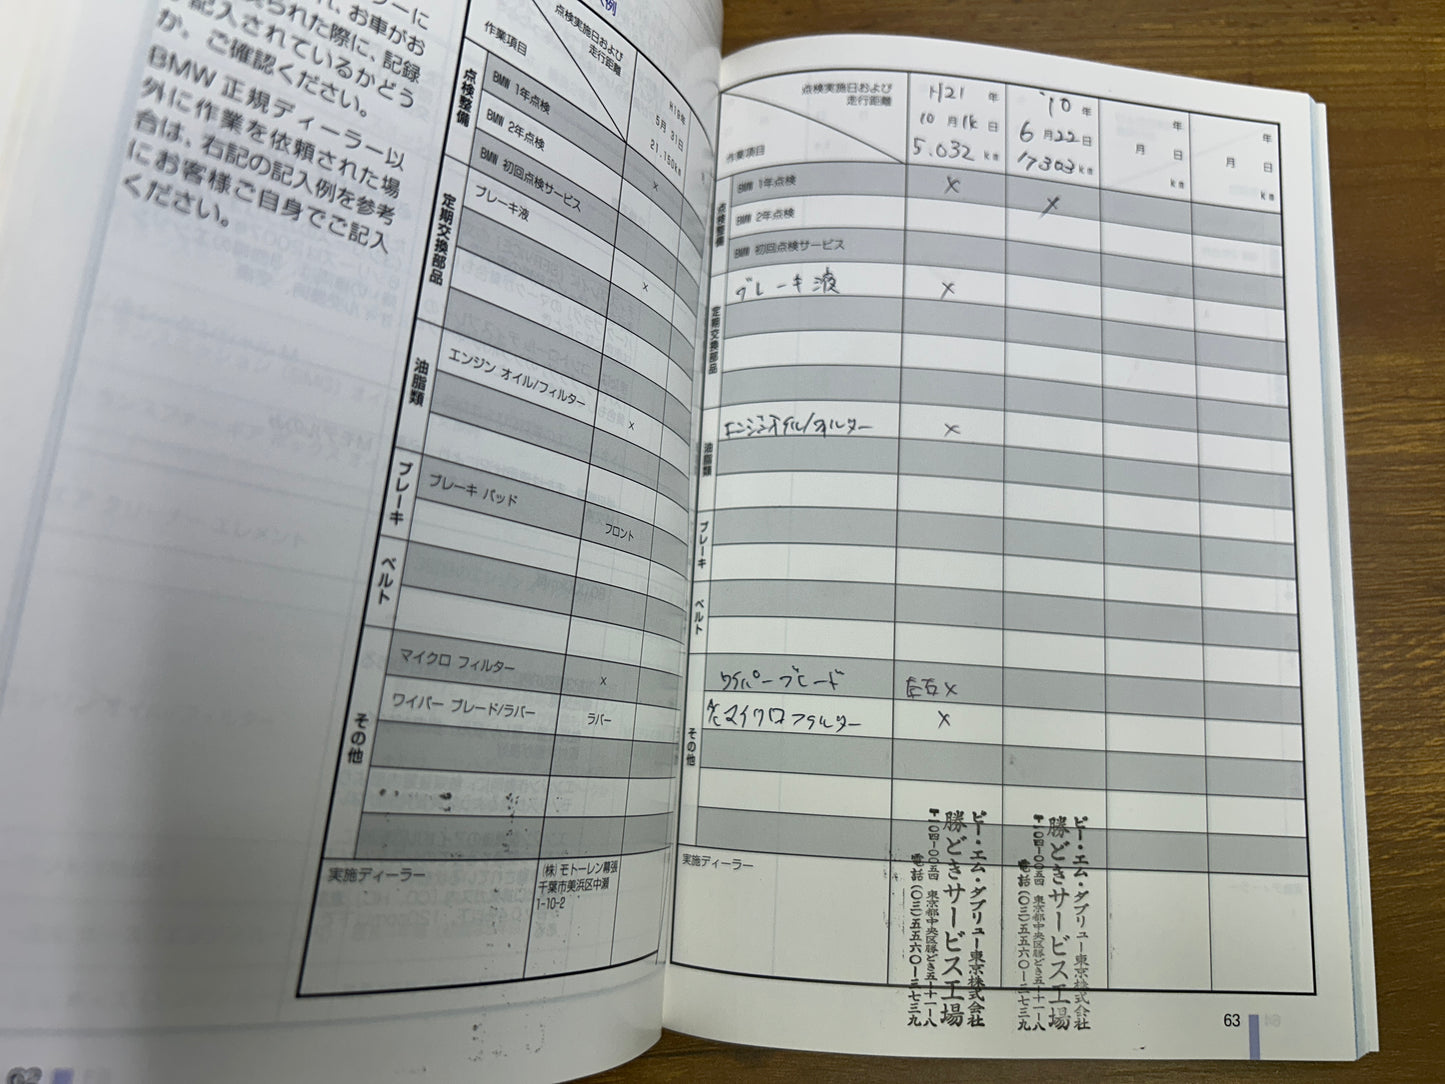 られた際に、記録
、お車がお
記入されているかどう
か、ご確認ください。
BMW 正規ディーラー以
外に作業を依頼された場
合は、右記の記入例を参考
にお客様ご自身でご記入
ください。
例
点検実施日および
走行距離
作業項目
H19年
5月 31日
21,150km
点検整備
BMW 1年点検
x
BMW 2年点検
BMW 初回点検サービス
定期交換部品
ブレーキ液
x
油脂類
エンジン オイル/フィルター
x
ブレーキ
ブレーキ パッド
フロント
ベルト
その他
マイクロ フィルター
x
ワイパー ブレード/ラバー
ラバー
実施ディーラー
(株) モトーレン幕張
千葉市美浜区中瀬
1-10-2
点検実施日および
走行距離
作業項目
H21 年
5.032 km
'10 年
6月22日
17303km
年
月 日
km
年
月 日
km
点検整備
BMW 1年点検
x
BMW 2年点検
x
BMW 初回点検サービス
定期交換部品
ブレーキ液
x
油脂類
エンジンオイル/フィルター
x
ブレーキ
ベルト
その他
ワイパーブレード
左右 x
A/C マイクロフィルター
x
実施ディーラー
ビー・エム・ダブリュー東京株式会社
勝どきサービス工場
〒一〇四-〇〇五四 東京都中央区勝どき五-十一-八
電話(〇三)五五六〇-二七三九
ビー・エム・ダブリュー東京株式会社
勝どきサービス工場
〒一〇四-〇〇五四 東京都中央区勝どき五-十一-八
電話(〇三)五五六〇-二七三九
63